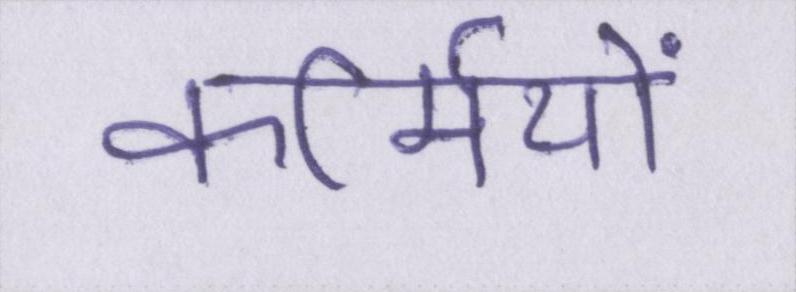 कर्मियों